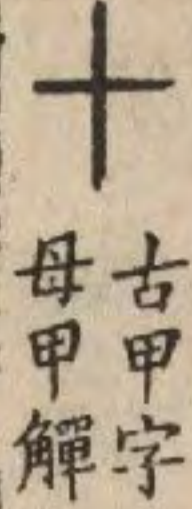 十
古甲字
母甲觶